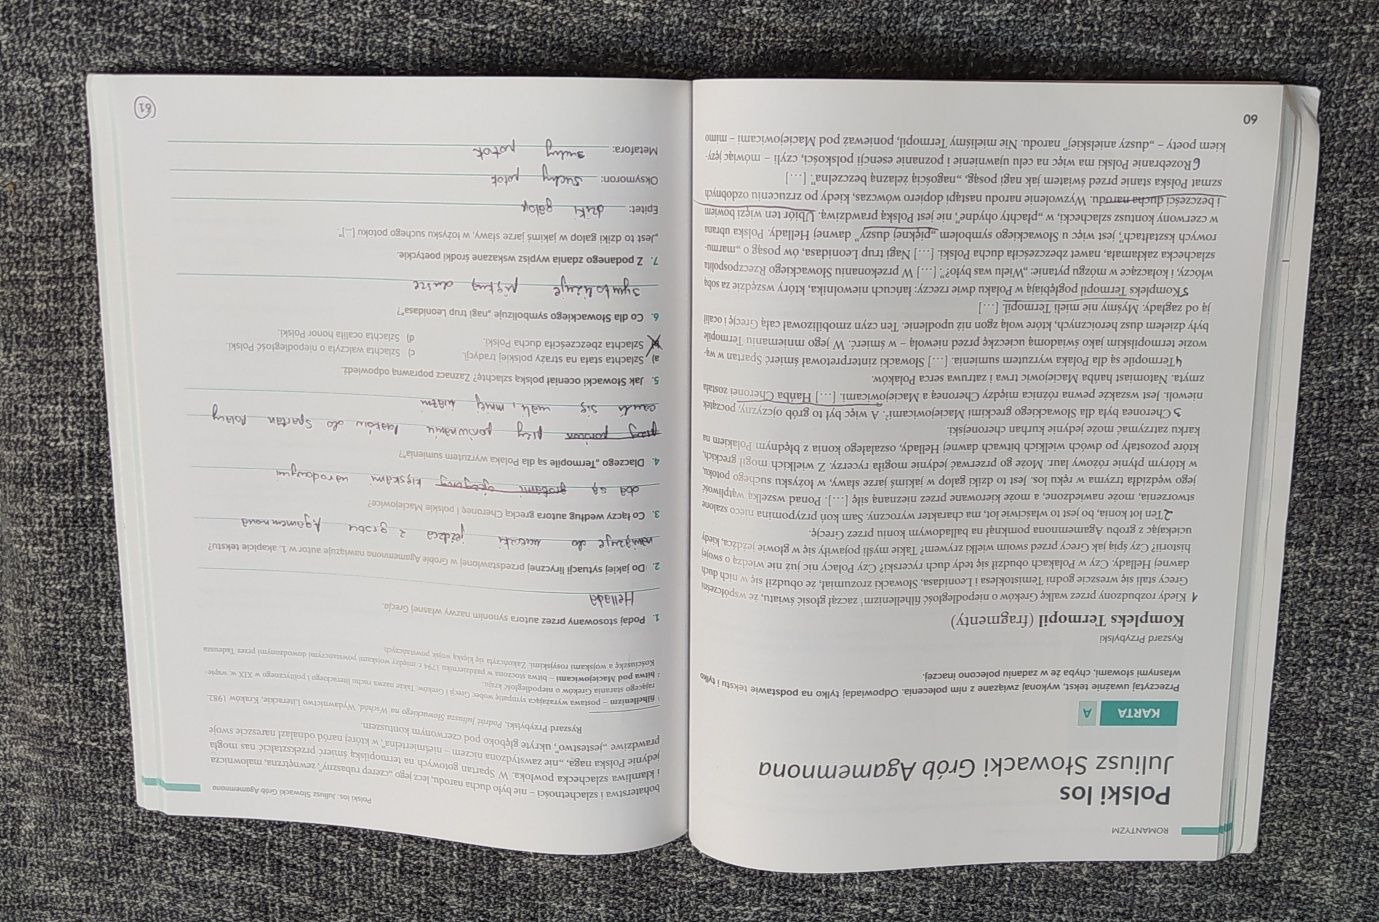 ROMANTYZM
Polski los
Juliusz Słowacki Grób Agamemnona
KARTA A
Przeczytaj uważnie tekst, wykonaj związane z nim polecenia. Odpowiadaj tylko na podstawie tekstu i tylko
własnymi słowami, chyba że w zadaniu polecono inaczej.
Ryszard Przybylski
Kompleks Termopil (fragmenty)
1 Kiedy rozbudzony przez walkę Greków o niepodległość filhellenizm¹ zaczął głosić światu, że współcześni
Grecy stali się wreszcie godni Temistoklesa i Leonidasa, Słowacki zrozumiał, że obudził się w nich duch
dawnej Hellady. Czy w Polakach obudził się tedy duch rycerski? Czy Polacy nic już nie wiedzą o swojej
historii? Czy śpią jak Grecy przed swoim wielki zrywem? Takie myśli pojawiły się w głowie jeźdźca, kiedy
uciekając z grobu Agamemnona pomknął na balladowym koniu przez Grecję.
2 Ten lot konia, bo jest to właściwie lot, ma charakter wyroczny. Sam koń przypomina nieco szalone
stworzenia, może nawiedzone, a może kierowane przez nieznaną siłę [...]. Ponad wszelką wątpliwość
jego wędzidła trzyma w ręku los. Jest to dziki galop w jakimś jarze sławy, w łożysku suchego potoku,
w którym płynie różowy laur. Może go przerwać jedynie mogiła rycerzy. Z wielkich mogił greckich,
które pozostały po dwóch wielkich bitwach dawnej Hellady, oszalałego konia z błędnym Polakiem na
karku zatrzymać może jedynie kurhan cheronejski.
3 Cheronea była dla Słowackiego greckimi Maciejowicami². A więc był to grób ojczyzny, początek
niewoli. Jest wszakże pewna różnica między Cheroneą a Maciejowicami. [...] Hańba Cheronei została
zmyta. Natomiast hańba Maciejowic trwa i zatruwa serca Polaków.
4 Termopile są dla Polaka wyrzutem sumienia. [...] Słowacki zinterpretował śmierć Spartan w wą-
wozie termopilskim jako świadomą ucieczkę przed niewolą – w śmierć. W jego mniemaniu Termopile
były dziełem dusz heroicznych, które wolą zgon niż upodlenie. Ten czyn zmobilizował całą Grecję i ocalił
ją od zagłady. Myśmy nie mieli Termopil. [...]
5 Kompleks Termopil pogłębiają w Polaku dwie rzeczy: łańcuch niewolnika, który wszędzie za sobą
włóczy, i kołaczące w mózgu pytanie: „Wielu was było?” [...] W przekonaniu Słowackiego Rzeczpospolita
szlachecka zakłamała, nawet zbezcześciła ducha Polski. [...] Nagi trup Leonidasa, ów posąg o „marmu-
rowych kształtach”, jest więc u Słowackiego symbolem „pięknej duszy” dawnej Hellady. Polska ubrana
w czerwony kontusz szlachecki, w „płachty ohydne”, nie jest Polską prawdziwą. Ubiór ten więzi bowiem
i bezcześci ducha narodu. Wyzwolenie narodu nastąpi dopiero wówczas, kiedy po zrzuceniu ozdobnych
szmat Polska stanie przed światem jak nagi posąg, „nagością żelazną bezczelna”. [...]
6 Rozebranie Polski ma więc na celu ujawnienie i poznanie esencji polskości, czyli – mówiąc języ-
kiem poety – „duszy anielskiej” narodu. Nie mieliśmy Termopil, ponieważ pod Maciejowicami – mimo
60
Polski los. Juliusz Słowacki Grób Agamemnona
bohaterstwa i szlachetności – nie było ducha narodu, lecz jego „czerep rubaszny”, zewnętrzna, malownicza
i kłamliwa szlachecka powłoka. W Spartan gotowych na termopilską śmierć przekształcić nas mogła
jedynie Polska naga, „nie zawstydzona niczem – nieśmiertelna”, w której naród odnalazł nareszcie swoje
prawdziwe „jestestwo”, ukryte głęboko pod czerwonym kontuszem.
Ryszard Przybylski, Podróż Juliusza Słowackiego na Wschód, Wydawnictwo Literackie, Kraków 1982.
¹ filhellenizm – postawa wyrażająca sympatię wobec Grecji i Greków. Także nazwa ruchu literackiego i politycznego w XIX w. wspie-
rającego starania Greków o niepodległość kraju.
² bitwa pod Maciejowicami – bitwa stoczona w październiku 1794 r. między wojskami powstańczymi dowodzonymi przez Tadeusza
Kościuszkę a wojskami rosyjskimi. Zakończyła się klęską wojsk powstańczych.
1. Podaj stosowany przez autora synonim nazwy własnej Grecja.
Hellada
2. Do jakiej sytuacji lirycznej przedstawionej w Grobie Agamemnona nawiązuje autor w 1. akapicie tekstu?
nawiązuje do ucieczki jeźdźca z grobu Agamemnona
3. Co łączy według autora grecką Cheroneę i polskie Maciejowice?
oba są grobami klęskami narodowymi
4. Dlaczego „Termopile są dla Polaka wyrzutem sumienia”?
przy porównaniu Polaków do Spartan Polacy
czuli się mali, mniej warci
5. Jak Słowacki oceniał polską szlachtę? Zaznacz poprawną odpowiedź.
a) Szlachta stała na straży polskiej tradycji. c) Szlachta walczyła o niepodległość Polski.
b) Szlachta zbezcześciła ducha Polski. d) Szlachta ocaliła honor Polski.
6. Co dla Słowackiego symbolizuje „nagi trup Leonidasa”?
symbolizuje piękną duszę
7. Z podanego zdania wypisz wskazane środki poetyckie.
„Jest to dziki galop w jakimś jarze sławy, w łożysku suchego potoku [...]”.
Epitet: dziki galop
Oksymoron: suchy potok
Metafora: suchy potok
61